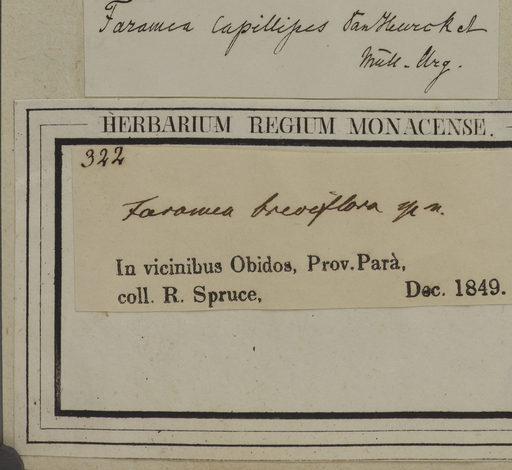 Faramea capillipes Van Heurck et
Müll-Arg.
HERBARIUM REGIUM MONACENSE.
322
Faramea breviflora sp n.
In vicinibus Obidos, Prov. Parà,
coll. R. Spruce, Dec. 1849.